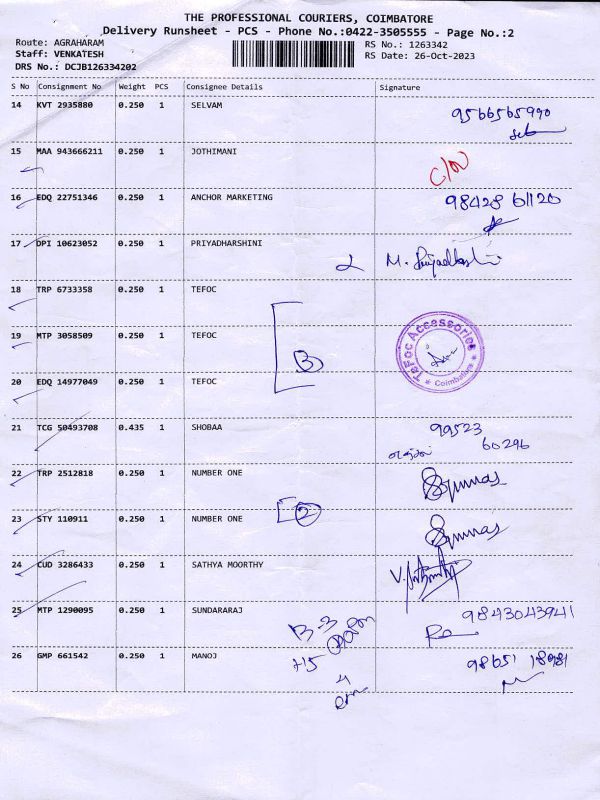 THE PROFESSIONAL COURIERS, COIMBATORE
Delivery Runsheet - PCS - Phone No.:0422-3505555 - Page No.:2
Route: AGRAHARAM
RS No.: 1263342
Staff: VENKATESH
RS Date: 26-Oct-2023
DRS No.: DCJB126334202
S No Consignment No Weight PCS Consignee Details Signature
14 KVT 2935880 0.250 1 SELVAM 9566565990
15 MAA 943666211 0.250 1 JOTHIMANI
16 EDQ 22751346 0.250 1 ANCHOR MARKETING 98428 61120
17 DPI 10623052 0.250 1 PRIYADHARSHINI
18 TRP 6733358 0.250 1 TEFOC
19 MTP 3058509 0.250 1 TEFOC 3
TEFOC Accessories
Coimbatore
20 EDQ 14977049 0.250 1 TEFOC
21 TCG 50493708 0.435 1 SHOBAA 99523
60296
22 TRP 2512818 0.250 1 NUMBER ONE
23 STY 110911 0.250 1 NUMBER ONE 2
24 CUD 3286433 0.250 1 SATHYA MOORTHY
25 MTP 1290095 0.250 1 SUNDARARAJ 9843043941
B-3
26 GMP 661542 0.250 1 MANOJ 98651 18981